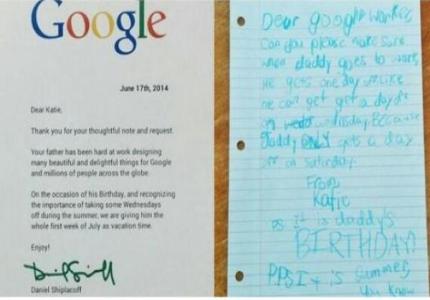 Google
June 17th, 2014
Dear Katie,
Thank you for your thoughtful note and request.
Your father has been hard at work designing
many beautiful and delightful things for Google
and millions of people across the globe.
On the occasion of his Birthday, and recognizing
the importance of taking some Wednesdays
off during the summer, we are giving him the
whole first week of July as vacation time.
Enjoy!
Daniel Shiplacoff
Dear google worker
Can you please make sure
when daddy goes to work
he gets one day off like
he can get get a day off
on wednesday Because
Daddy ONLY gets a day
off on saturday.
From
Katie
PS it is daddy's
BIRTHDAY!
PPS It is summer
You know